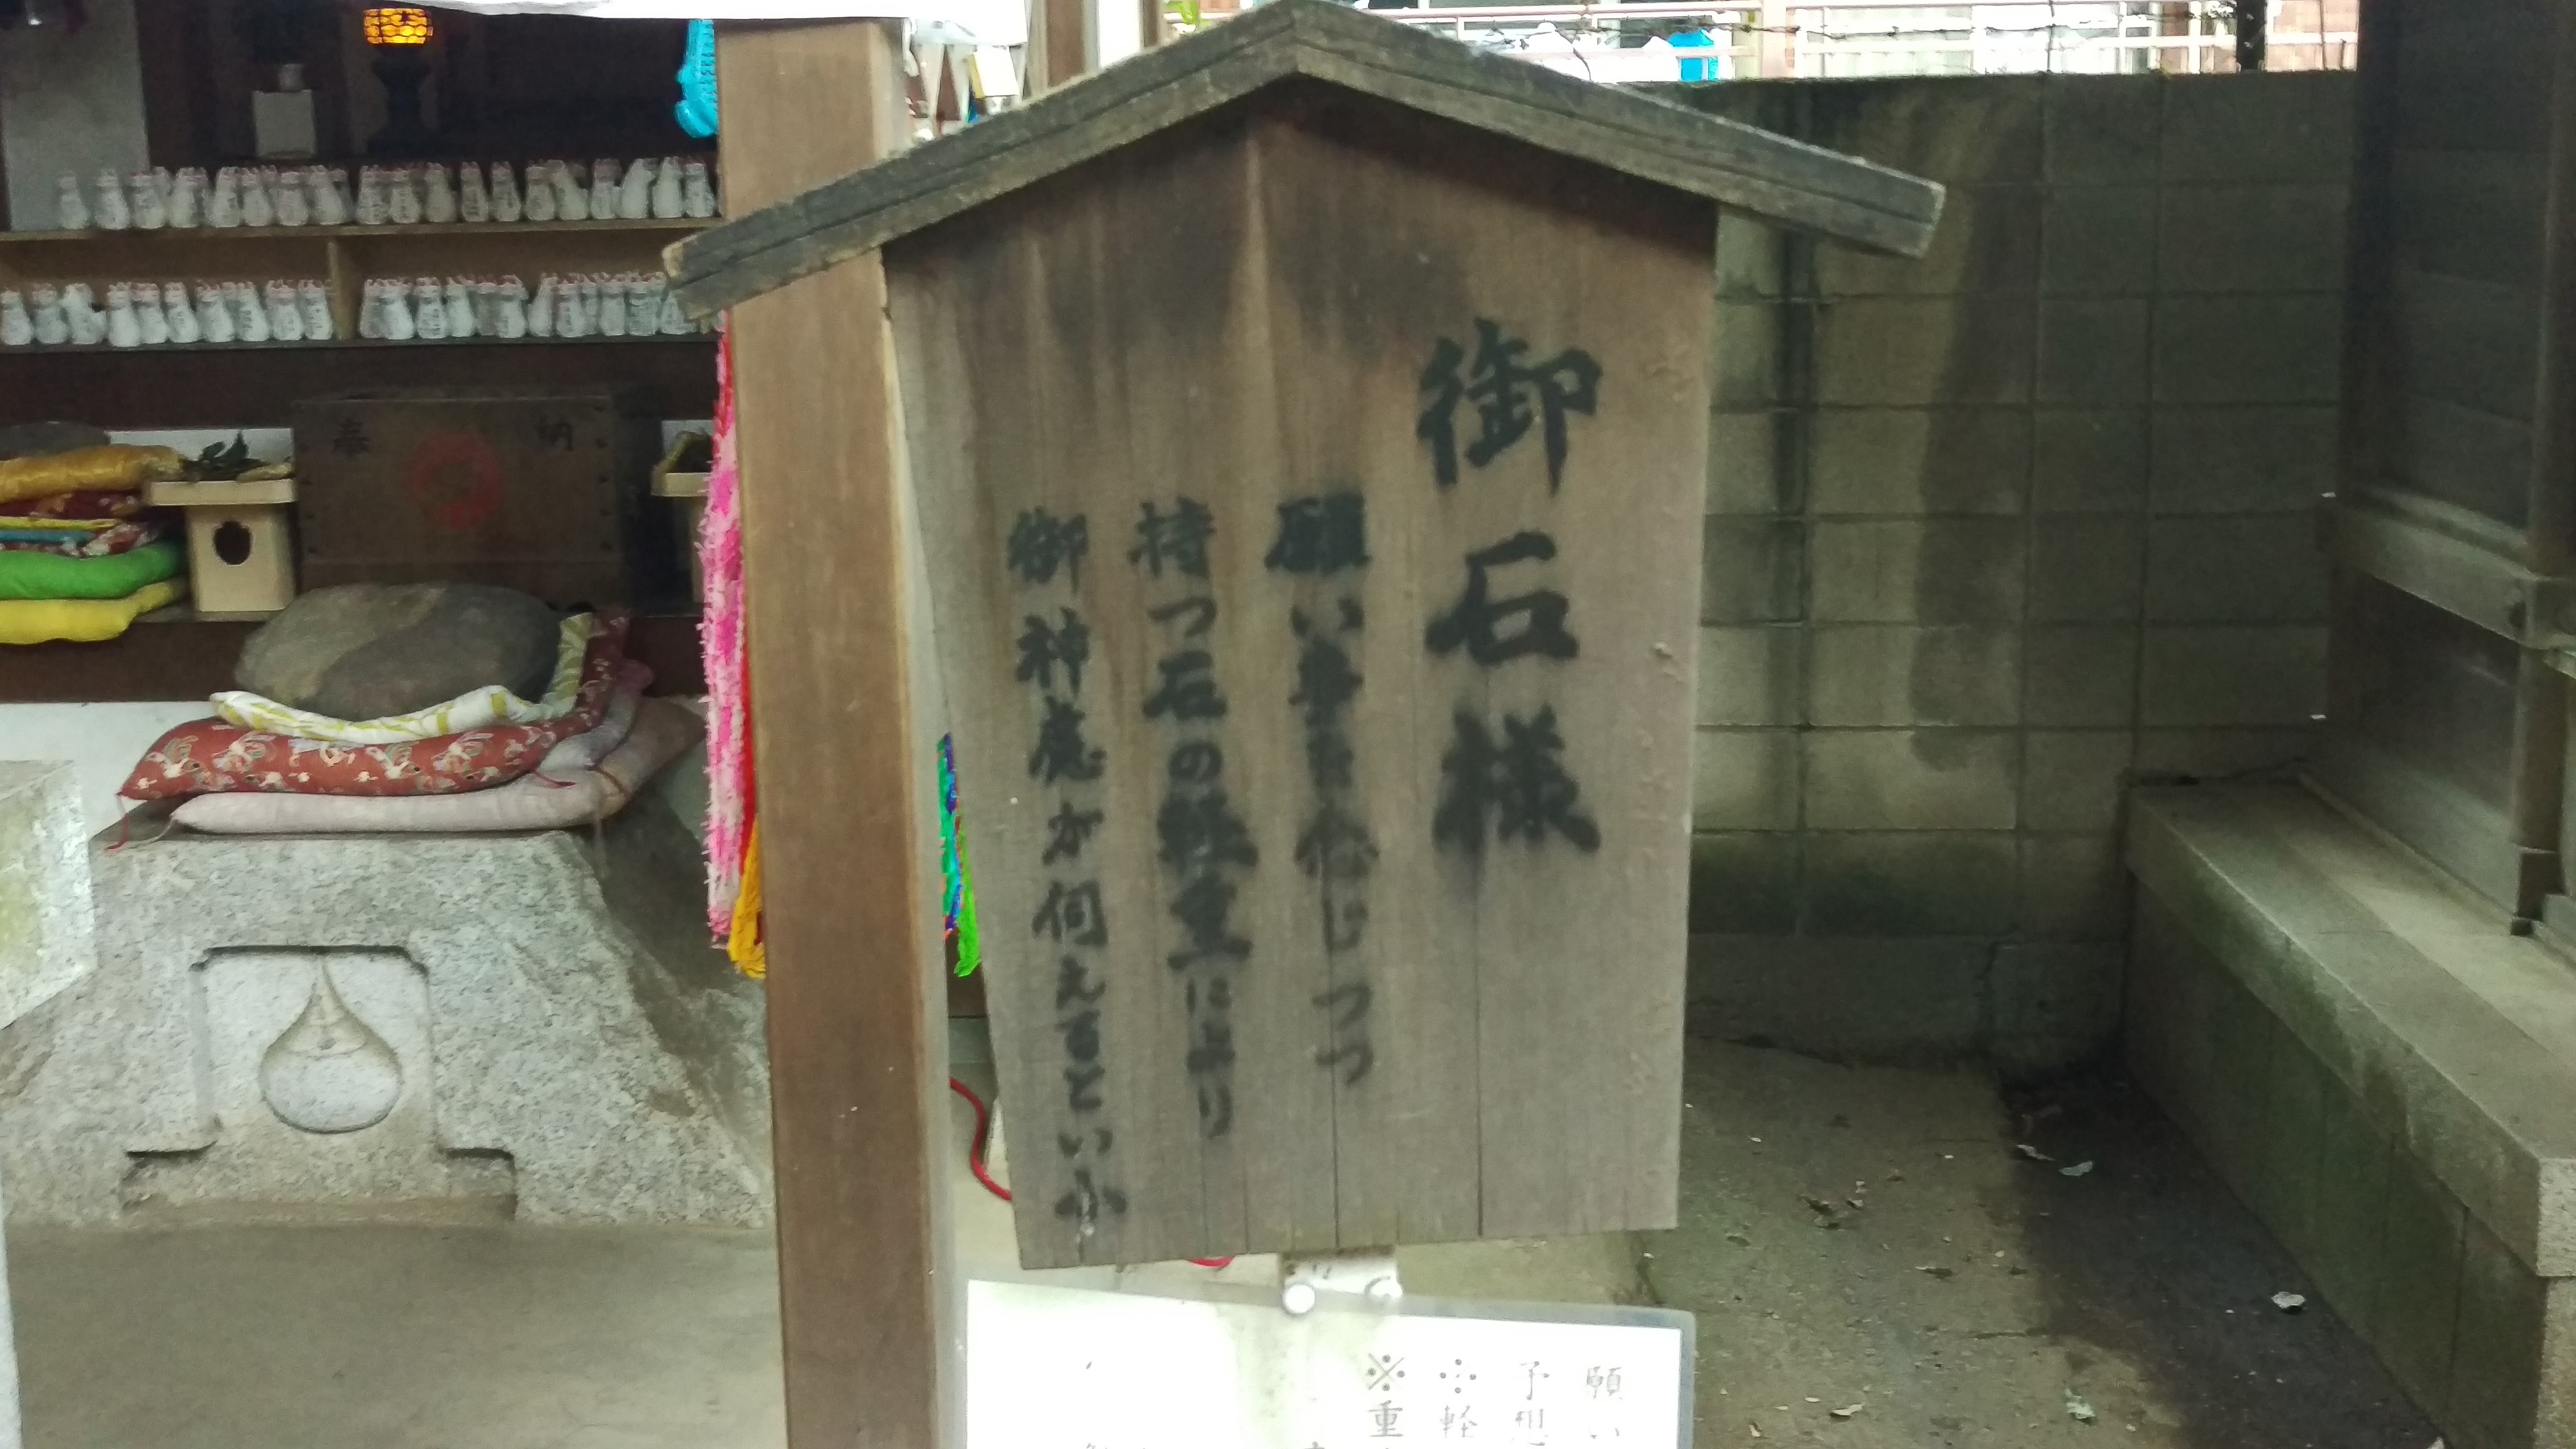 御石様
願い事を念じつつ
持つ石の軽重により
御神慮が伺えるとい小
願い
予想
※軽
※重
奉納